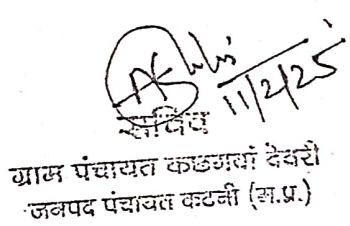 11/2/25
सचिव
ग्राम पंचायत कछगवां देवरी
जनपद पंचायत कटनी (म.प्र.)